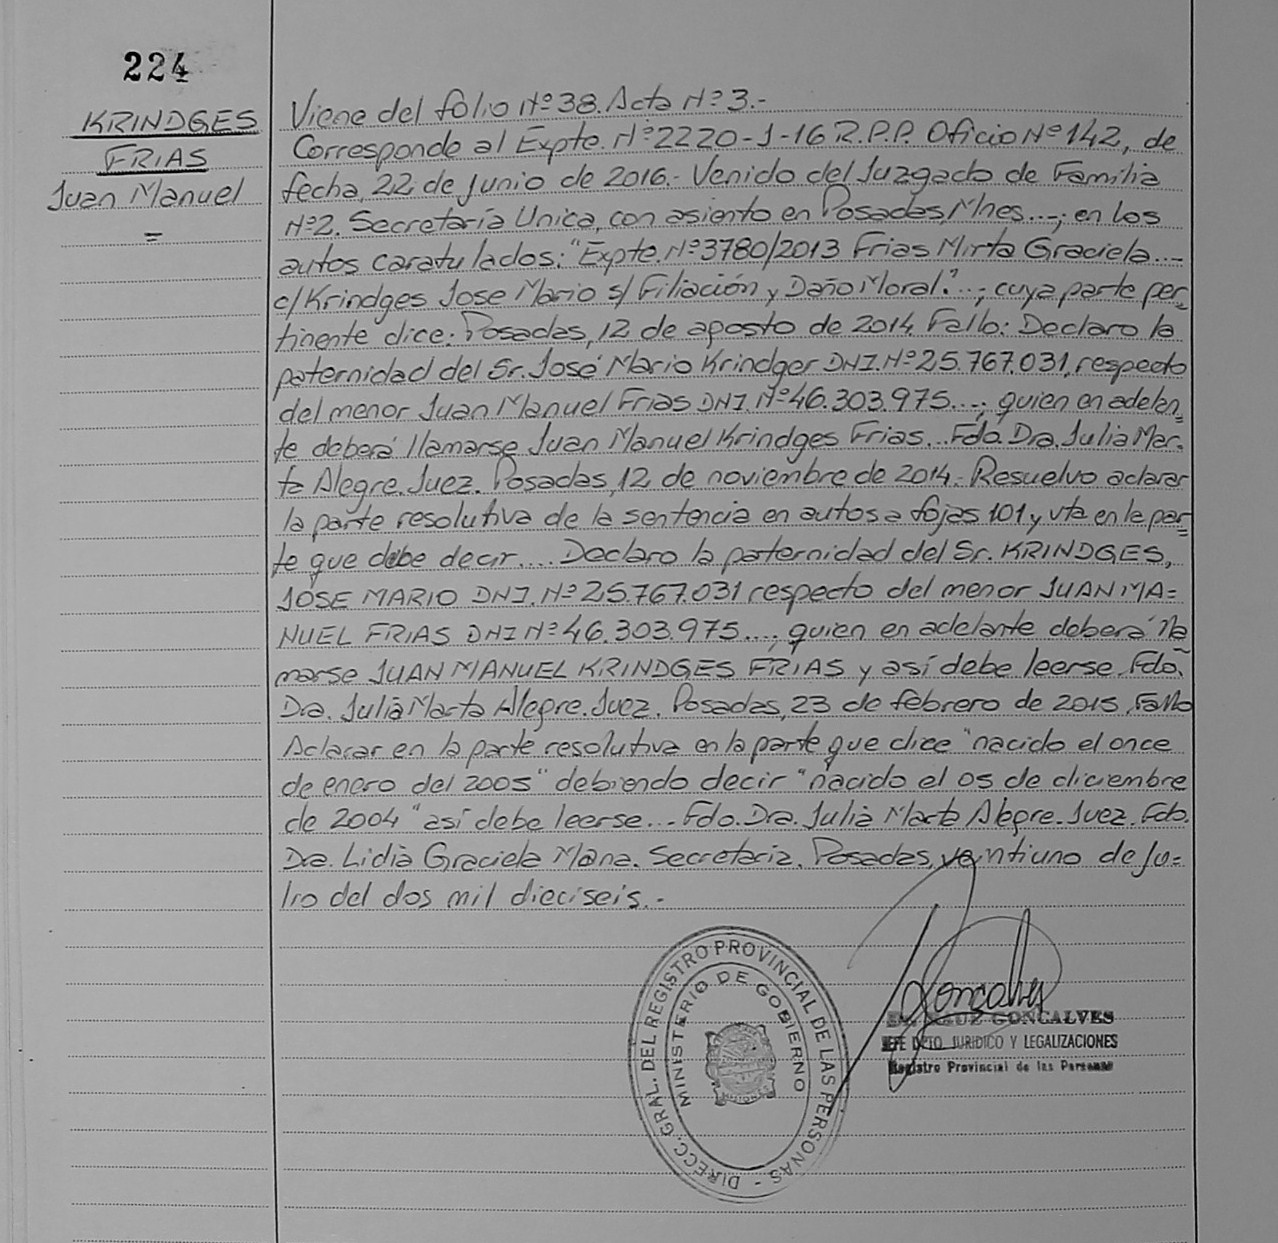 224
KRINDGES
FRIAS
Juan Manuel
=
Viene del folio Nº 38. Acta Nº 3.-
Corresponde al Expte. Nº 2220-J-16 R.P.P. Oficio Nº 142, de
fecha, 22 de junio de 2016.- Venido del Juzgado de Familia
Nº2. Secretaría Unica, con asiento en Posadas, Mnes...-; en los
autos caratulados: "Expte. Nº 3780/2013 Frias Mirta Graciela...-
c/ Krindges Jose Mario s/ Filiación y Daño Moral."..-; cuya parte per-
tinente dice: Posadas, 12 de agosto de 2014. Fallo: Declaro la
paternidad del Sr. José Mario Krindger DNI. Nº 25.767.031, respecto
del menor Juan Manuel Frias DNI. Nº 46.303.975...-; quien en adelan-
te deberá llamarse Juan Manuel Krindges Frias... Fdo. Dra. Julia Mar-
ta Alegre. Juez. Posadas, 12 de noviembre de 2014.- Resuelvo aclarar
la parte resolutiva de la sentencia en autos a fojas 101 y vta en la par-
te que debe decir.... Declaro la paternidad del Sr. KRINDGES,
JOSE MARIO DNI. Nº 25.767.031 respecto del menor JUAN MA-
NUEL FRIAS DNI Nº 46.303.975...-; quien en adelante deberá lla
marse JUAN MANUEL KRINDGES FRIAS y así debe leerse. Fdo.
Dra. Julia Marta Alegre. Juez. Posadas, 23 de febrero de 2015. Fallo
Aclarar en la parte resolutiva en la parte que dice "nacido el once
de enero del 2005" debiendo decir "nacido el 05 de diciembre
de 2004" así debe leerse... Fdo. Dra. Julia Marta Alegre. Juez. Fdo.
Dra. Lidia Graciela Mana. Secretaria. Posadas, veintiuno de Ju-
lio del dos mil dieciseis.-
DIRECC. GRAL. DEL REGISTRO PROVINCIAL DE LAS PERSONAS -
MINISTERIO DE GOBIERNO
MISIONES
Goncalves
GONCALVES
JEFE DPTO. JURIDICO Y LEGALIZACIONES
Registro Provincial de las Personas